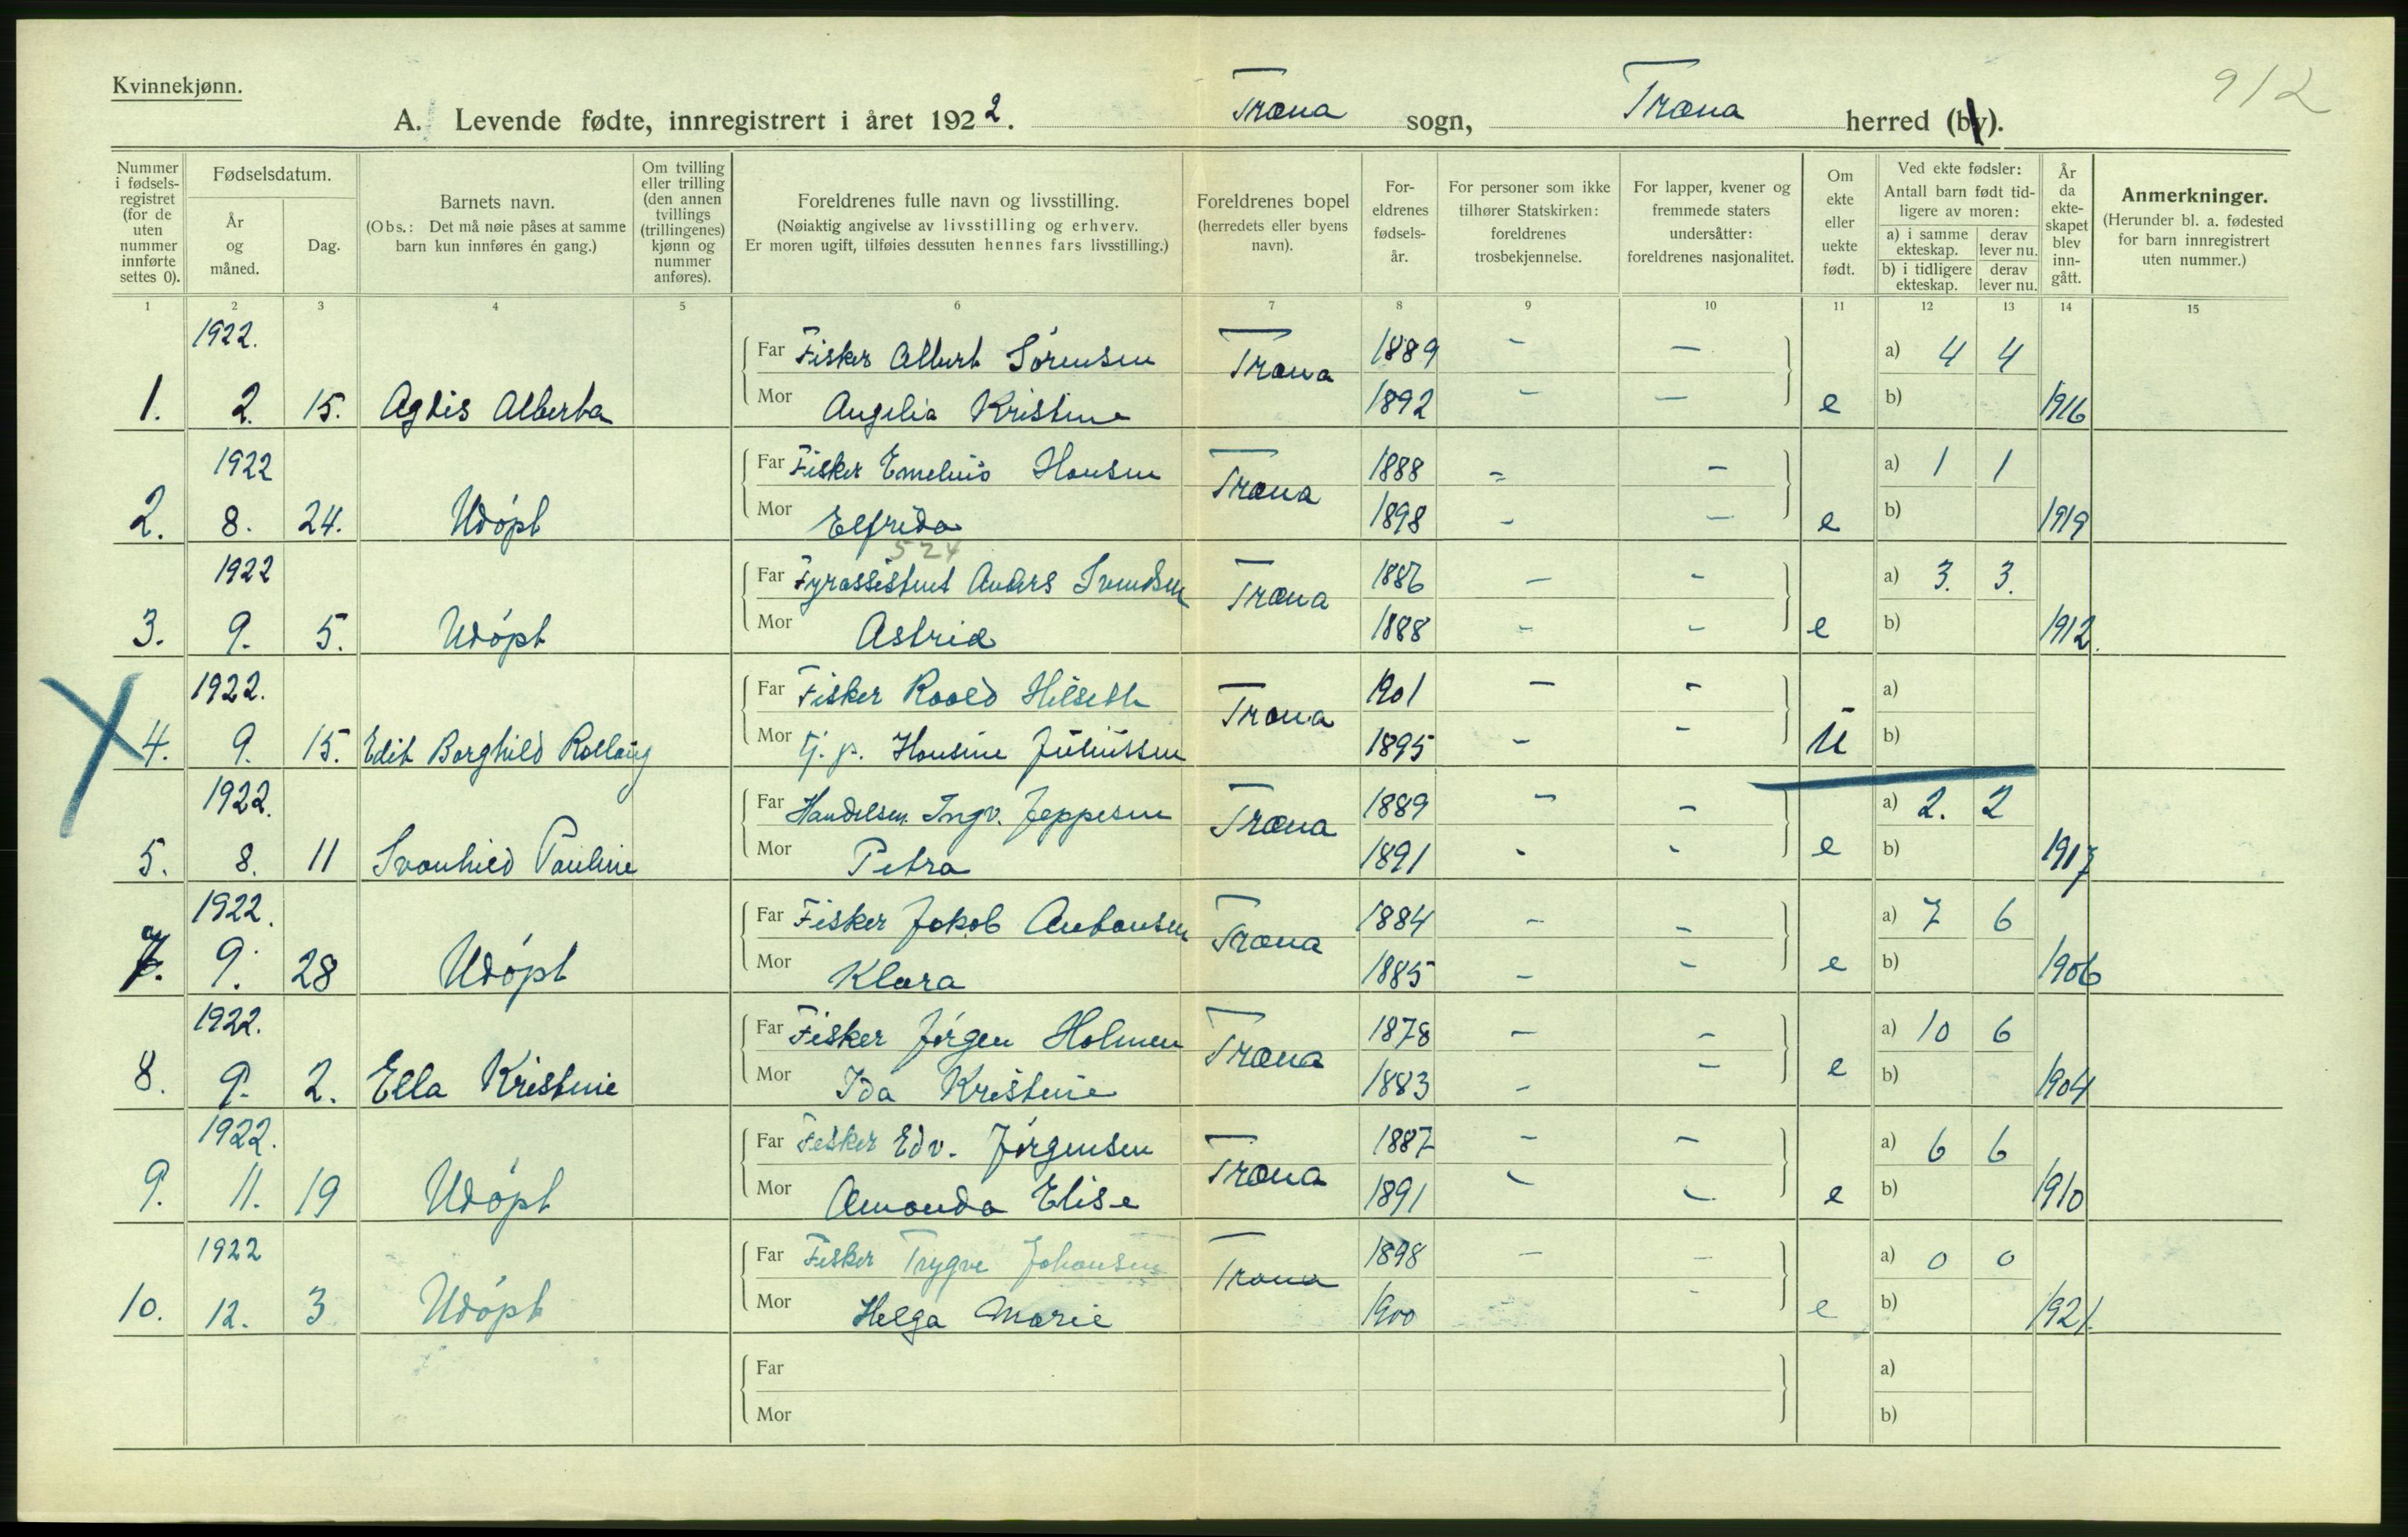 912
Kvinnekjønn.
A. Levende fødte, innregistrert i året 1922. Træna sogn, Træna herred (by).
Nummer i fødselsregistret (for de uten nummer innførte settes 0).
Fødselsdatum.
År og måned.
Dag.
Barnets navn.
(Obs.: Det må nøie påses at samme barn kun innføres én gang.)
Om tvilling eller trilling (den annen tvillings (trillingenes) kjønn og nummer anføres).
Foreldrenes fulle navn og livsstilling.
(Nøiaktig angivelse av livsstilling og erhverv.
Er moren ugift, tilføies dessuten hennes fars livsstilling.)
Foreldrenes bopel (herredets eller byens navn).
Foreldrenes fødselsår.
For personer som ikke tilhører Statskirken: foreldrenes trosbekjennelse.
For lapper, kvener og fremmede staters undersåtter: foreldrenes nasjonalitet.
Om ekte eller uekte født.
Ved ekte fødsler:
Antall barn født tidligere av moren:
a) i samme ekteskap. derav lever nu.
b) i tidligere ekteskap. derav lever nu.
År da ekteskapet blev inngått.
Anmerkninger.
(Herunder bl. a. fødested for barn innregistrert uten nummer.)
1 2 3 4 5 6 7 8 9 10 11 12 13 14 15
1922. Far Fisker Albert Sörensen Træna 1889 - - a) 4 4
1. 2. 15. Agdis Alberta Mor Angelia Kristine 1892 - - e b) 1916
1922 Far Fisker Hansen Træna 1888 - - a) 1 1
2. 8. 24. Udöpt Mor Elfrida 1898 - - e b) 1919
524
1922 Far Fyrassistent Anders Svendsen Træna 1886 - - a) 3. 3.
3. 9. 5. Udöpt Mor Astrid 1888 - - e b) 1912.
1922. Far Fisker Roald Hilseth Træna 1901 - - a)
4. 9. 15. Edit Borghild Mor tj. p. Hansine Juliussen 1895 - - u b)
1922. Far Handelsm. Ingv. Jeppesen Træna 1889 - - a) 2. 2
5. 8. 11 Svanhild Pauline Mor Petra 1891 - - e b) 1917
1922. Far Fisker Jakob Antonsen Træna 1884 - - a) 7 6
7. 9. 28 Udöpt Mor Klara 1885 - - e b) 1906
1922. Far Fisker Jörgen Holmen Træna 1878 - - a) 10 6
8. 9. 2. Ella Kristine Mor Ida Kristine 1883 - - e b) 1904
1922. Far Fisker Edv. Jörgensen Træna 1887 - - a) 6 6
9. 11. 19 Udöpt Mor Amanda Elise 1891 - - e b) 1910
1922 Far Fisker Trygve Johansen Træna 1898 - - a) 0 0
10. 12. 3 Udöpt Mor Helga Marie 1900 - e b) 1921.
Far a)
Mor b)